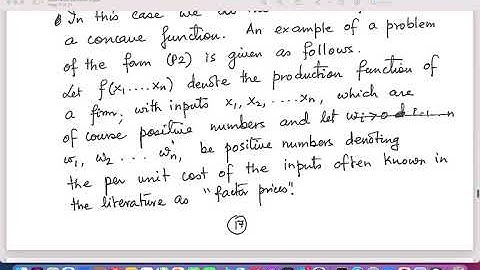 In this case we
a concave function. An example of a problem
of the form (P2) is given as follows.
Let f(x1....xn) denote the production function of
a firm, with inputs x1, x2, ....xn, which are
of course positive numbers and let
w1, w2 ... wn, be positive numbers denoting
the per unit cost of the inputs often known in
the literature as "factor prices".
17